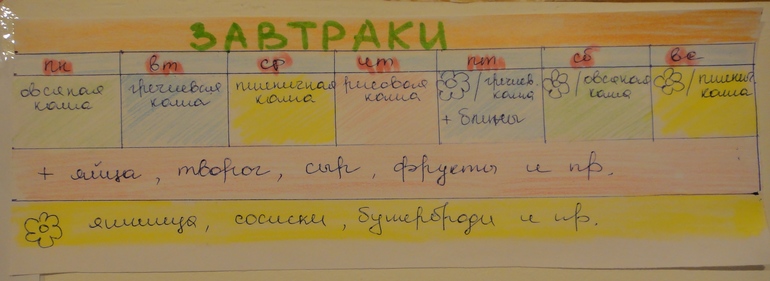 ЗАВТРАКИ
пн вт ср чт пт сб вс
овсяная каша
гречневая каша
пшеничная каша
рисовая каша
/гречнев. каша
+ блины
/овсяная каша
/пшенич каша
+ яйца, творог, сыр, фрукты и пр.
яишница, сосиски, бутерброди и пр.